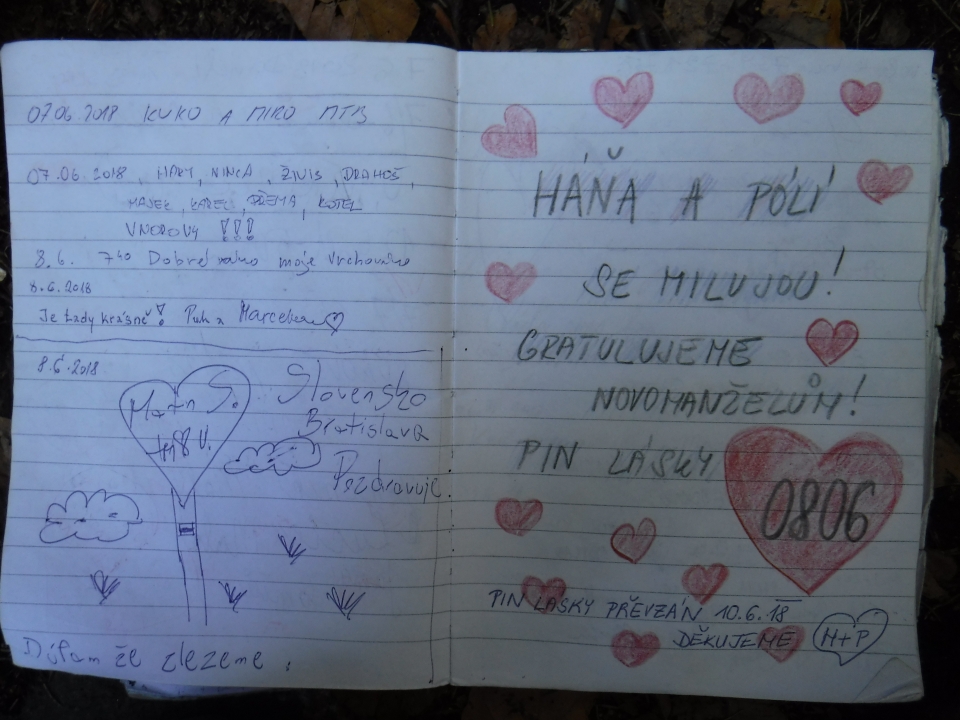 07.06.2018 KUKO A MIRO MTB
07.06.2018, HARY, NINCA, ŽIVIS, DRAHOŠ,
HAJEK, KAREL, PŘEMA, KOTEL
VNOROVY !!!
8.6. 7⁴⁰ Dobré ráno moje Vrchovino
8.6.2018
Je tady krásně! Marcelka ♡
8.6.2018
S.
Slovensko
Bratislava
Pozdravuje.
že zlezeme
HÁŇA A PÓLÍ
SE MILUJOU!
GRATULUJEME
NOVOMANŽELŮM!
PIN LÁSKY
0806
PIN LÁSKY PŘEVZÁN 10.6.18
DĚKUJEME H+P